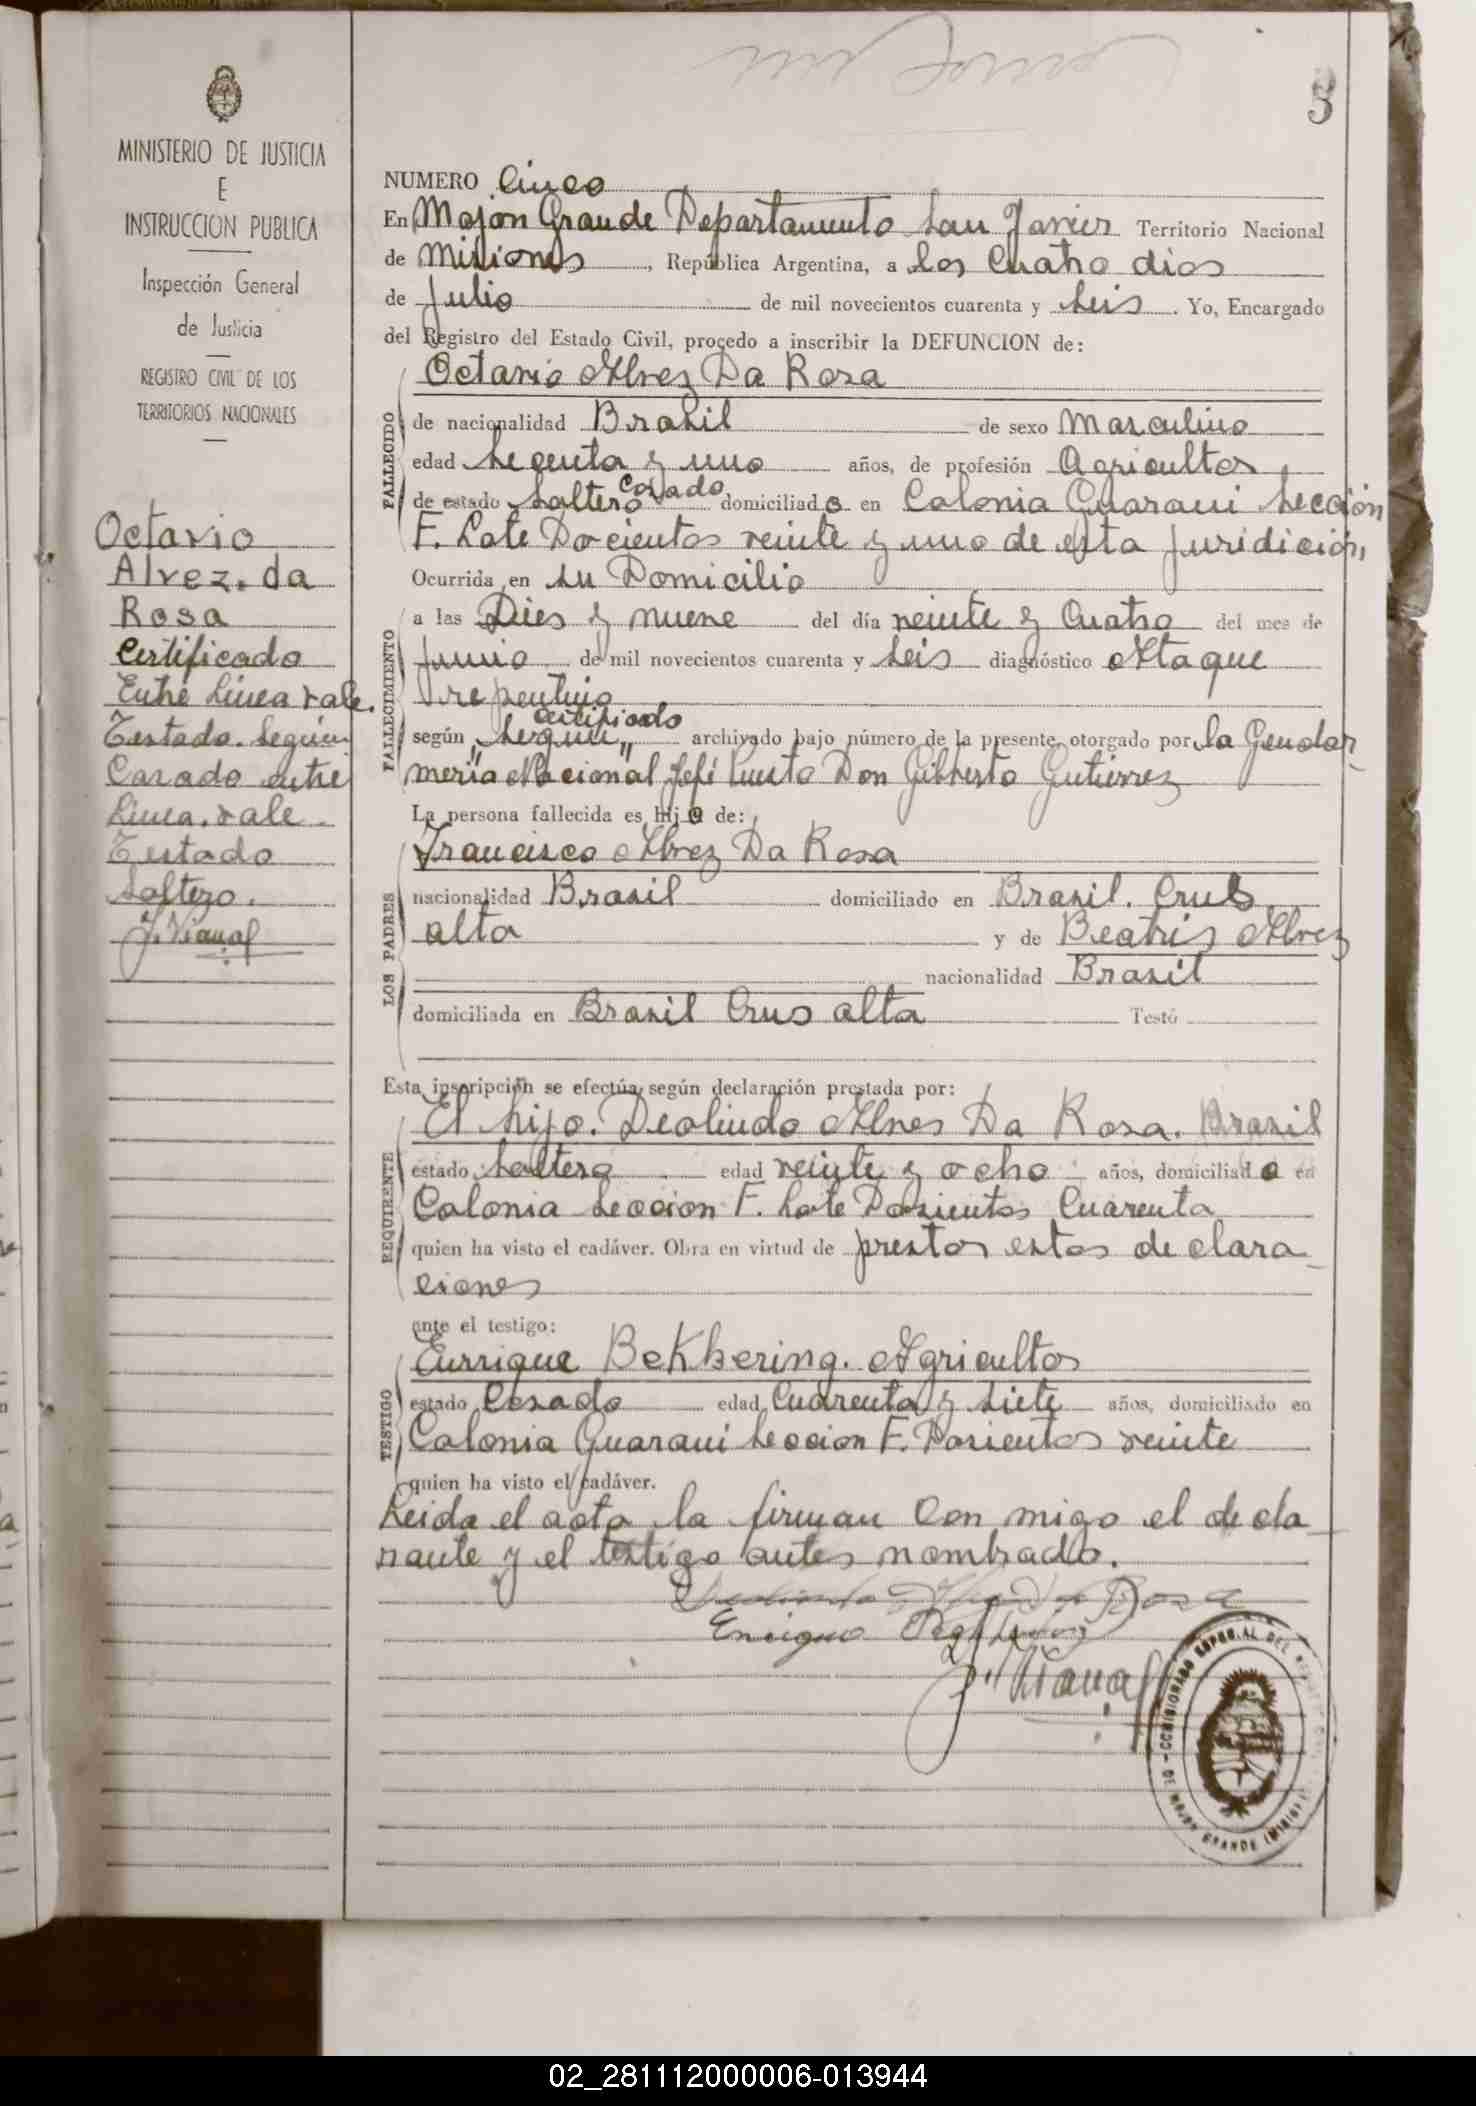 3
MINISTERIO DE JUSTICIA
E
INSTRUCCION PUBLICA
Inspección General
de Justicia
REGISTRO CIVIL DE LOS
TERRITORIOS NACIONALES
Octavio
Alvez. da
Rosa
Certificado
Entre Linea vale.
Testado. Seguin
Casado entre
Linea. vale.
Testado
Soltero.
NUMERO Cinco
En Mojon Grande Departamento San Javier Territorio Nacional
de Misiones, República Argentina, a los Cuatro dias
de Julio de mil novecientos cuarenta y seis. Yo, Encargado
del Registro del Estado Civil, procedo a inscribir la DEFUNCION de:
Octavio Alvez Da Rosa
FALLECIDO
de nacionalidad Brasil de sexo Masculino
edad Secenta y uno años, de profesión Agricultor,
Casado
de estado Soltero domiciliado en Colonia Guarani Sección
F. Lote Docientos veinte y uno de esta Juridición,
Ocurrida en su Domicilio
FALLECIMIENTO
a las Dies y nueve del día veinte y Cuatro del mes de
Junio de mil novecientos cuarenta y seis diagnóstico Ataque
repentino
certificado
según "Seguin" archivado bajo número de la presente, otorgado por la Gendar
meria Nacional Jefe Puesto Don Gilberto Gutierrez
La persona fallecida es hijo de:
LOS PADRES
Francisco Alvez Da Rosa
nacionalidad Brasil domiciliado en Brasil. Crus
alta y de Beatris Alvez
nacionalidad Brasil
domiciliada en Brasil Crus alta Testó
Esta inscripción se efectúa según declaración prestada por:
REQUIRENTE
El hijo. Deolindo Alves Da Rosa. Brasil
estado Soltero edad veinte y ocho años, domiciliado en
Colonia Seccion F. Lote Dosientos Cuarenta
quien ha visto el cadáver. Obra en virtud de prestar estas declara
ciones
ante el testigo:
TESTIGO
Enrrique Bekhering. Agricultor
estado Casado edad Cuarenta y siete años, domiciliado en
Colonia Guarani Seccion F. Dosientos veinte
quien ha visto el cadáver.
Leida el acta la firman Con migo el decla
rante y el testigo antes nombrado.
Enrique
02_281112000006-013944